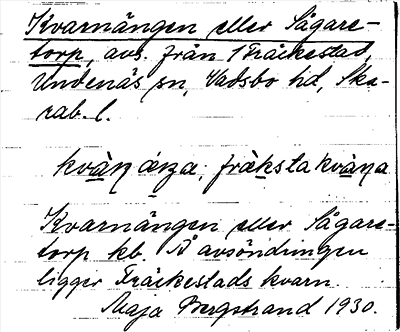 Kvarnängen eller Sågare-
torp, avs. från 1 Fräckestad,
Undenäs sn, Vadsbo hd, Ska-
rab. l.
kvàṇ áŋa, fräksta kvàṇa
Kvarnängen eller Sågare-
torp kb. Å avsöndringen
ligger Fräckestads kvarn.
Maja Bergstrand 1930.